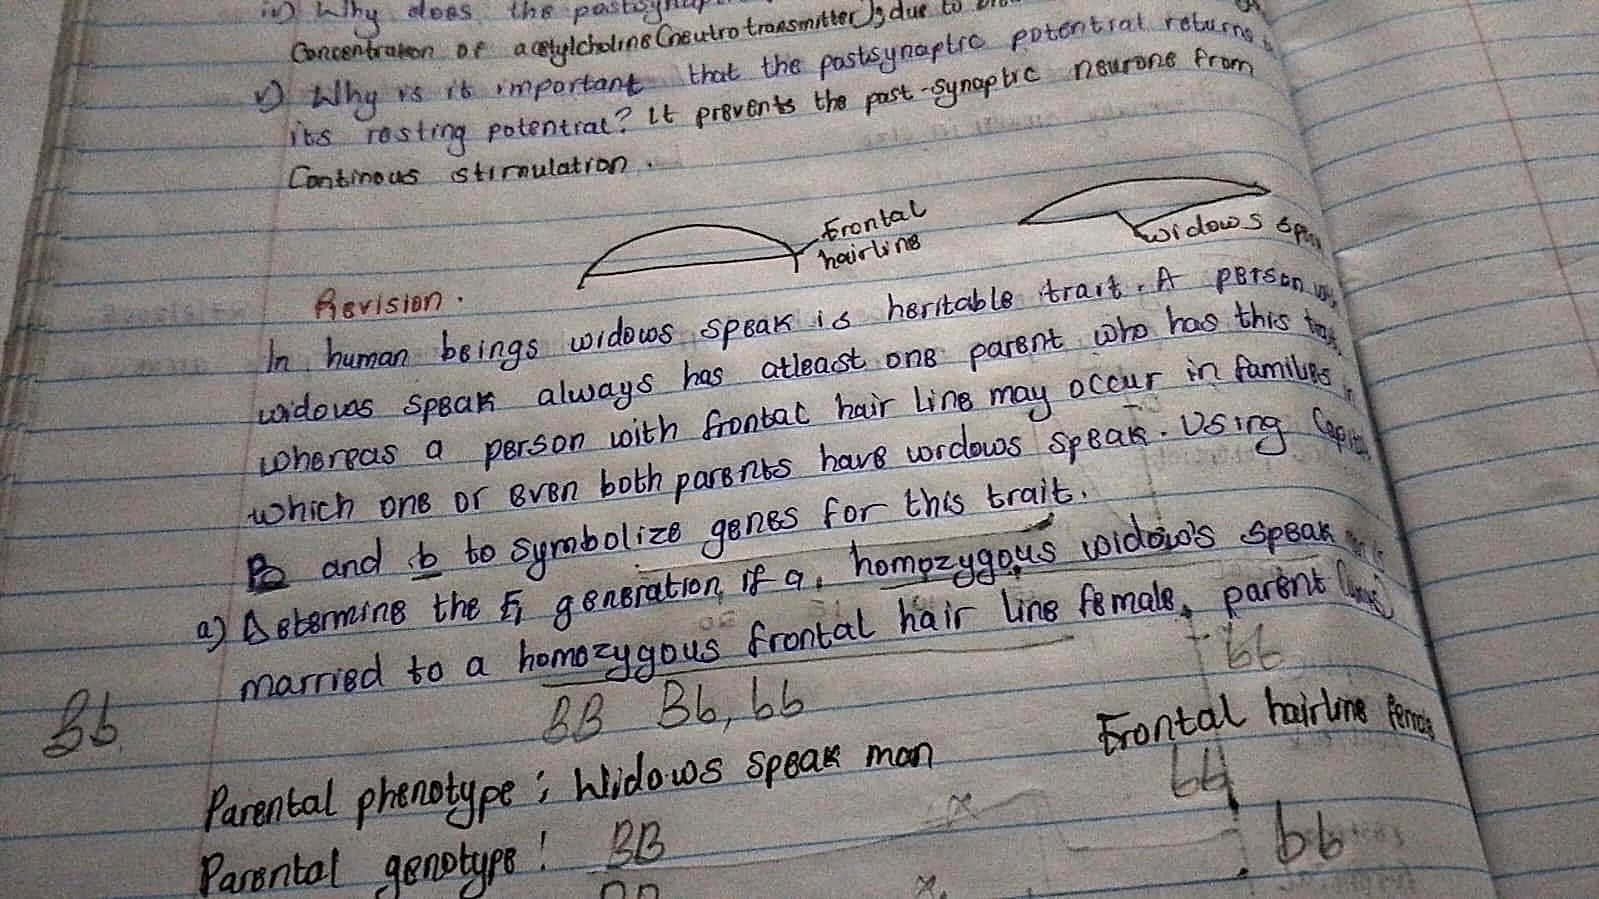 iv) Why does the
Concentration of acetylcholine (neutrotransmitter); due to
v) Why is it important that the postsynaptic potential returns
its resting potential? It prevents the post-synaptic neurone from
Continous stimulation.
Frontal
hairline
widows
Revision.
In human beings widows speak is heritable trait. A person
widows speak always has atleast one parent who has this
whereas a person with frontal hair line may occur in families in
which one or even both parents have widows speak. Using
B and b to symbolize genes for this trait.
a) Determine the F1 generation if a homozygous widow's speak
married to a homozygous frontal hair line female, parent
bb
Bb
BB Bb, bb
Parental phenotype; Widows speak man Frontal hairline
bb
Parental genotype! BB x bb
x